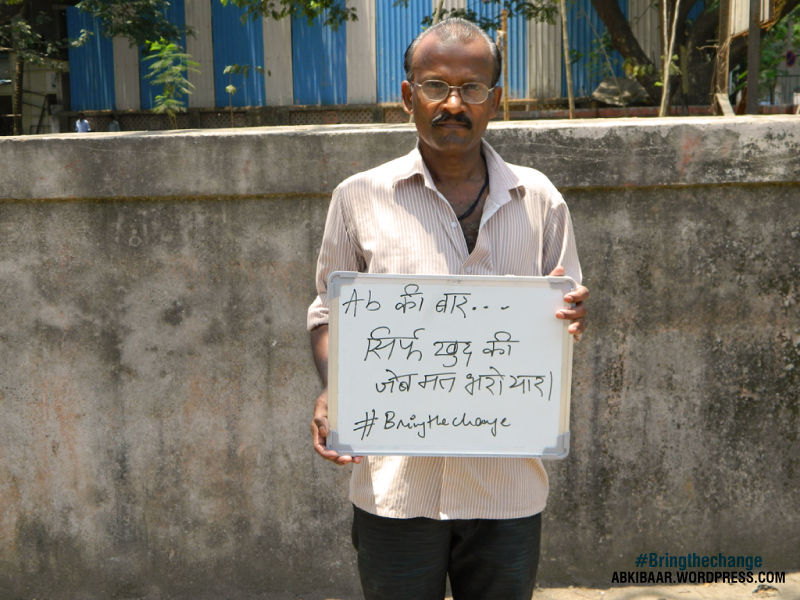 Ab की बार...
सिर्फ खुद की
जेब मत भरो यार।
#Bringthechange
#Bringthechange
ABKIBAAR.WORDPRESS.COM